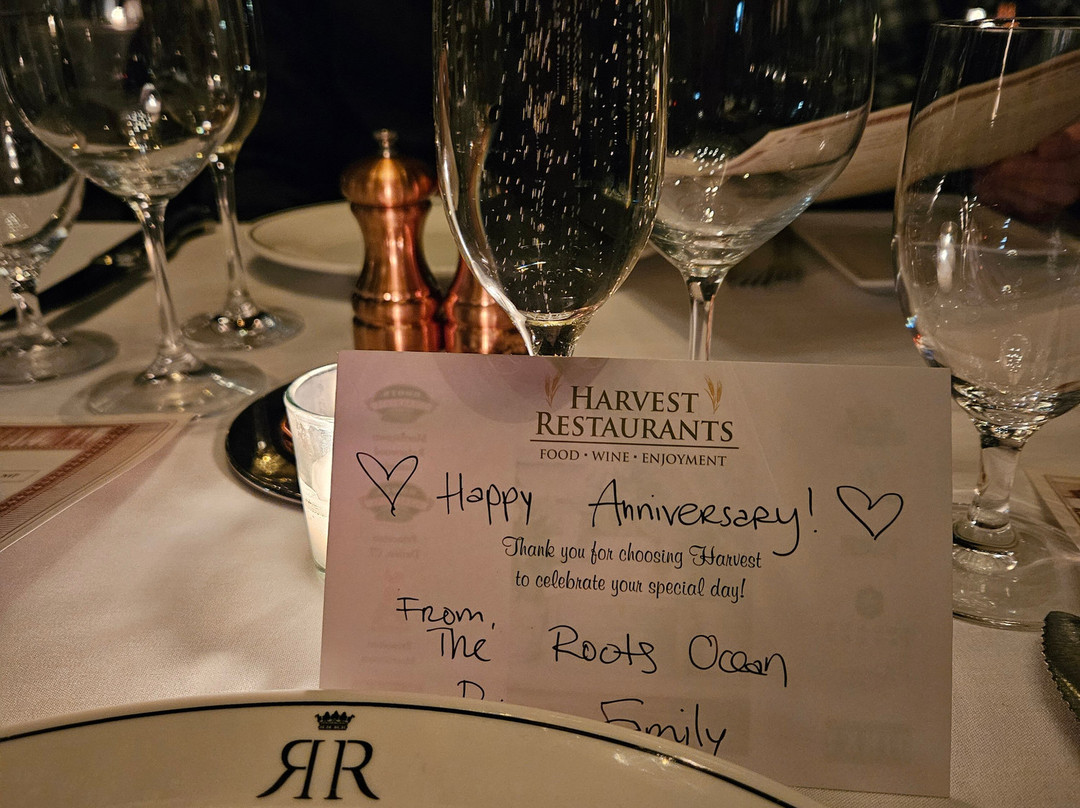 HARVEST
RESTAURANTS
FOOD • WINE • ENJOYMENT
Happy Anniversary!
Thank you for choosing Harvest
to celebrate your special day!
From,
The Roots Ocean
Emily
RR